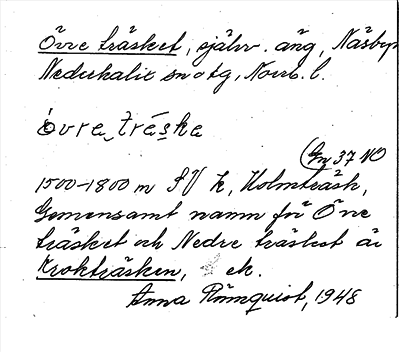 Övre träsket, självv. äng, Näsbyn
Nederkalix sn o tg, Norrb. l.
òvrа träska
(Gn 37 NO
1500-1800 m SV k, Holmträsk,
Gemensamt namn för Övre
träsket och Nedre träsket är
Krokträsken, ek.
Anna Rönnquist, 1948